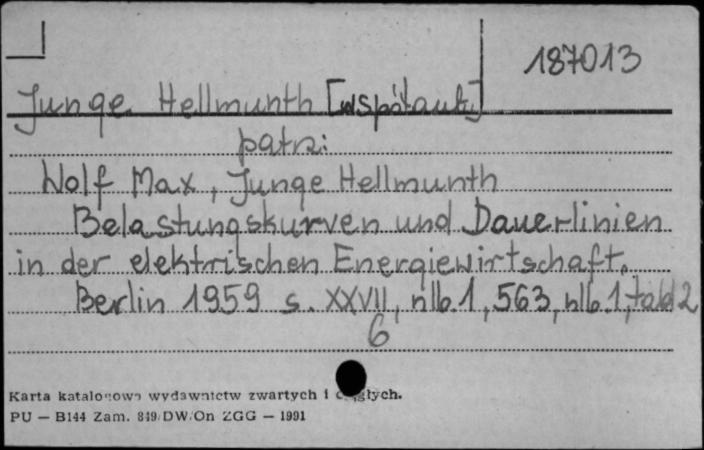 187013
Junge Hellmunth [współaut.]
patrz:
Wolf Max, Junge Hellmunth
Belastungskurven und Dauerlinien
in der elektrischen Energiewirtschaft.
Berlin 1959 s. XXVII, nlb. 1, 563, nlb. 1, tabl 2
6
Karta katalogowa wydawnictw zwartych i ciągłych.
PU — B144 Zam. 849/DW/On ZGG — 1991